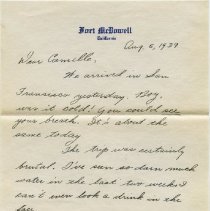 Fort McDowell
California
Aug. 5, 1939
Dear Camille,
We arrived in San
Francisco yesterday. Boy,
was it cold! You could see
your breath. It's about the
same today.
The trip was certainly
brutal. I've seen so darn much
water in the last two weeks I
can't even look a drink in the
face